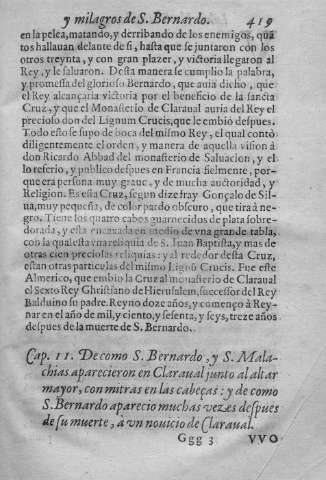 y milagros de S. Bernardo. 419
en la pelea, matando, y derribando de los enemigos, quã
tos hallauan delante de si, hasta que se juntaron con los
otros treynta, y con gran plazer, y victoria llegaron al
Rey, y le saluaron. Desta manera se cumplio la palabra,
y promessa del glorioso Bernardo, que auia dicho, que
el Rey alcançaria victoria por el beneficio de la sancta
Cruz, y que el Monasterio de Claraual auria del Rey el
precioso don del Lignum Crucis, que le embiò despues.
Todo esto se supo de boca del mismo Rey, el qual contò
diligentemente el orden, y manera de aquella vision à
don Ricardo Abbad del monasterio de Saluacion, y el
lo referio, y publico despues en Francia fielmente, por-
que era persona muy graue, y de mucha auctoridad, y
Religion. Es esta Cruz, segun dize fray Gonçalo de Sil-
ua, muy pequeña, de color pardo obscuro, que tira à ne-
gro. Tiene los quatro cabos guarnecidos de plata sobre-
dorada, y esta encaxada en medio de vna grande tabla,
con la qual esta vna reliquia de S. Iuan Baptista, y mas de
otras cien preciosas reliquias: y al rededor desta Cruz,
estan otras particulas del mismo Lignũ Crucis. Fue este
Almerico, que embio la Cruz al monasterio de Claraual
el Sexto Rey Christiano de Hierusalem, successor del Rey
Balduino su padre. Reyno doze años, y començò à Rey-
nar en el año de mil, y ciento, y sesenta, y seys, treze años
despues de la muerte de S. Bernardo.
Cap. 11. De como S. Bernardo, y S. Mala-
chias aparecieron en Claraual junto al altar
mayor, con mitras en las cabeças: y de como
S. Bernardo aparecio muchas vezes despues
de su muerte, à vn nouicio de Claraual.
Ggg 3 VVO